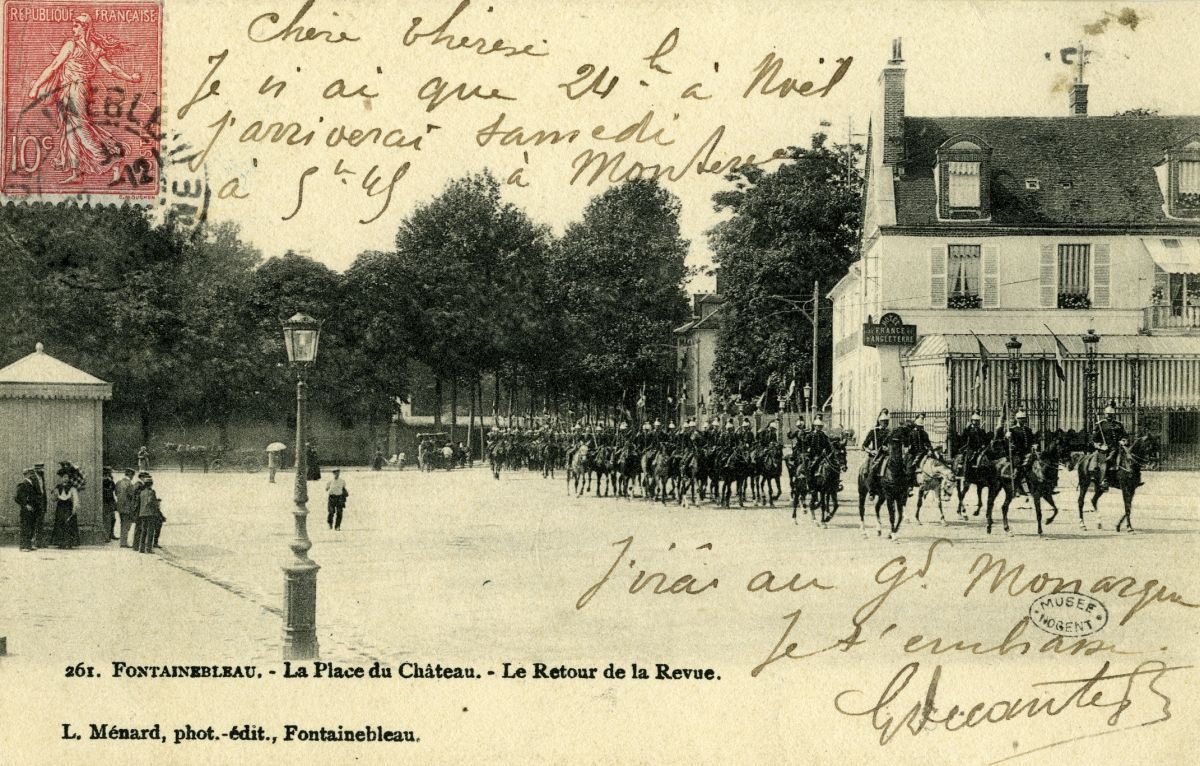 REPUBLIQUE FRANÇAISE
10c
Chère Thérèse
Je n'ai que 24h à Noël
j'arriverai samedi
à 5h45 à Montereau
FRANCE
D'ANGLETERRE
J'irai au Gd Monarque
MUSEE
NOGENT
Je t'embrasse.
261. FONTAINEBLEAU. - La Place du Château. - Le Retour de la Revue.
L. Ménard, phot.-édit., Fontainebleau.